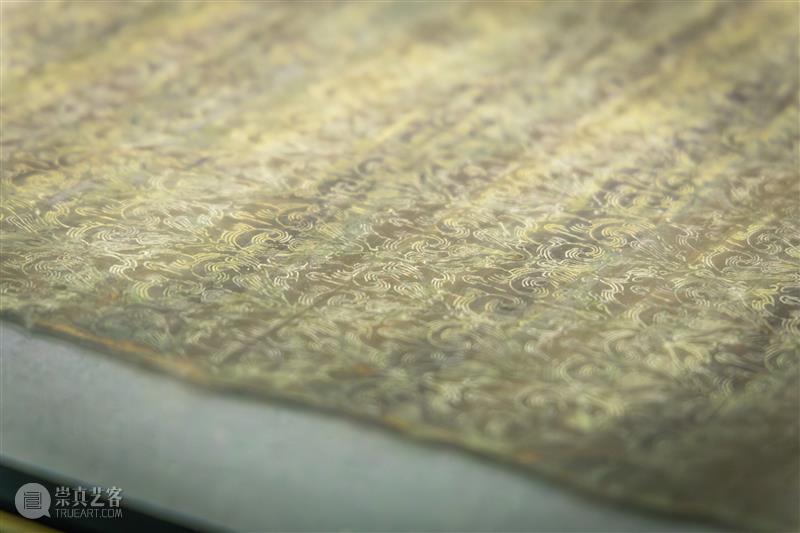 崇真艺客
TRUEART.COM